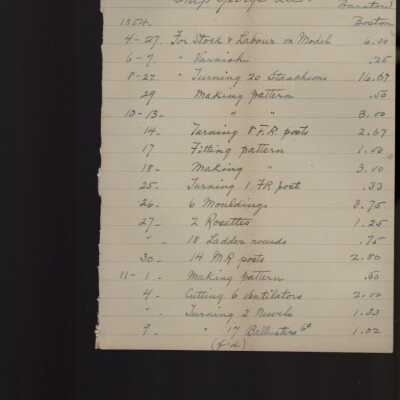 Ship George
Boston
1854.
4-27. For Stock & Labour on Model 6.00
6-7. " Varnish .25
8-22. " Turning 20 Stanchions 16.67
29 Making pattern .50
10-13- " " 3.00
14- Turning 8 F.R. posts 2.67
17 Fitting pattern 1.00
18- Making " 3.00
25- Turning 1 FR post .33
26- 6 Mouldings 3.75
27- 2 Rosettes 1.25
"- 18 Ladder rounds .75
30- 14 M R posts 2.80
11-1- Making pattern .50
4- Cutting 6 Ventilators 2.00
"- Turning 2 Newels 1.33
9- " 17 Ballusters 6¢ 1.02